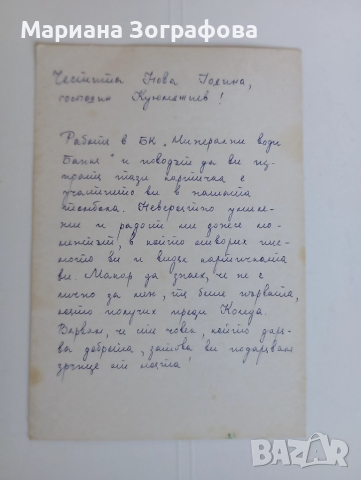 Мариана Зографова
Честита Нова Година,
господин Куюмджиев!
Работя в БК „Минерални води
Банкя" и поводът да ви из-
пратя тази картичка е
участието ви в нашата
томбола. Невероятно умиле-
ние и радост ми донесе мо-
ментът, в който отворих пис-
мото ви и видях картичката
ви. Макар да знаех, че не е
лично за мен, тя беше първата,
която получих преди Коледа.
Вярвам, че сте човек, който даря-
ва доброта, затова ви подарявам
зрънце от моята!
BAZAR
.bg